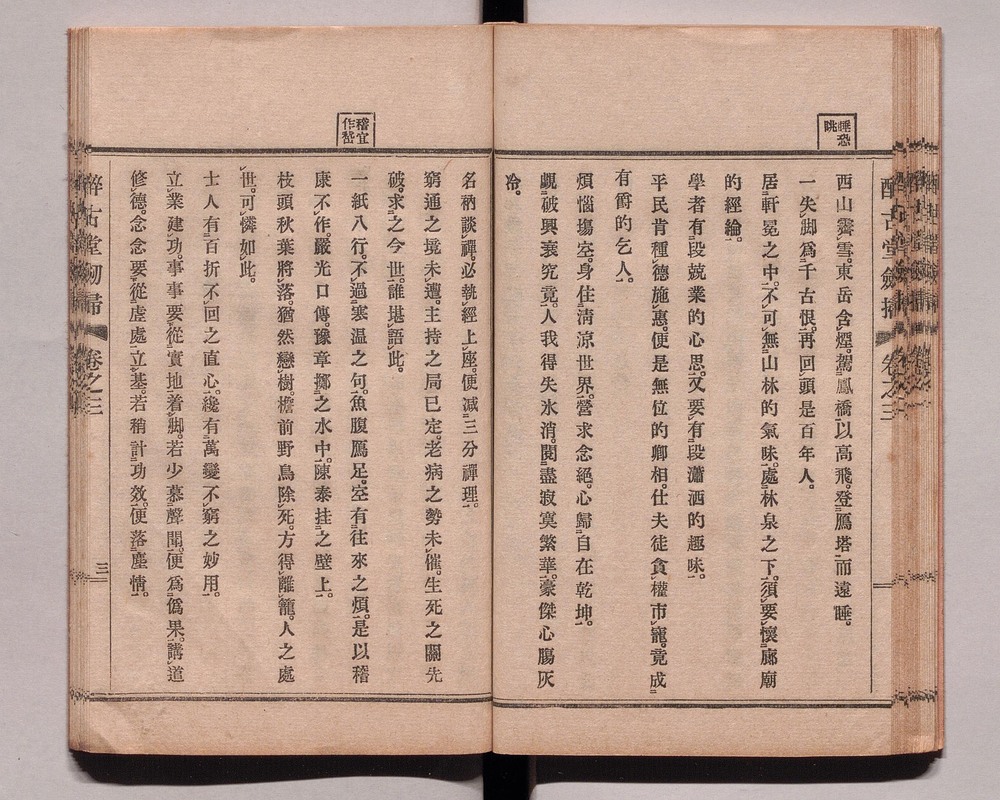 睡恐
眺
西山霽雪。東岳含煙。駕鳳橋以高飛。登鴈塔而遠睡。
一失脚爲千古恨。再回頭是百年人。
居軒冕之中。不可無山林的氣味。處林泉之下。須要懷廊廟
的經綸。
學者有段兢業的心思。又要有段瀟洒的趣味。
平民肯種德施惠。便是無位的卿相。仕夫徒貪權市寵。竟成
有爵的乞人。
煩惱塲空。身住清涼世界。營求念絕。心歸自在乾坤。
覷破興衰究竟。人我得失氷消。閱盡寂寞繁華。豪傑心腸灰
冷。
醉古堂劒掃 卷之三
稽宜
作嵆
名衲談禪。必執經上座。便減三分禪理。
窮通之境未遭。主持之局已定。老病之勢未催。生死之關先
破。求之今世。誰堪語此。
一紙八行。不過寒温之句。魚腹鴈足。空有往來之煩。是以稽
康不作。嚴光口傳。豫章擲之水中。陳泰挂之壁上。
枝頭秋葉將落。猶然戀樹。檐前野鳥除死。方得離籠。人之處
世。可憐如此。
士人有百折不回之直心。纔有萬變不窮之妙用。
立業建功。事事要從實地着脚。若少慕聲聞。便爲僞果。講道
修德。念念要從虛處立基。若稍計功效。便落塵情。
醉古堂劒掃 卷之三
三